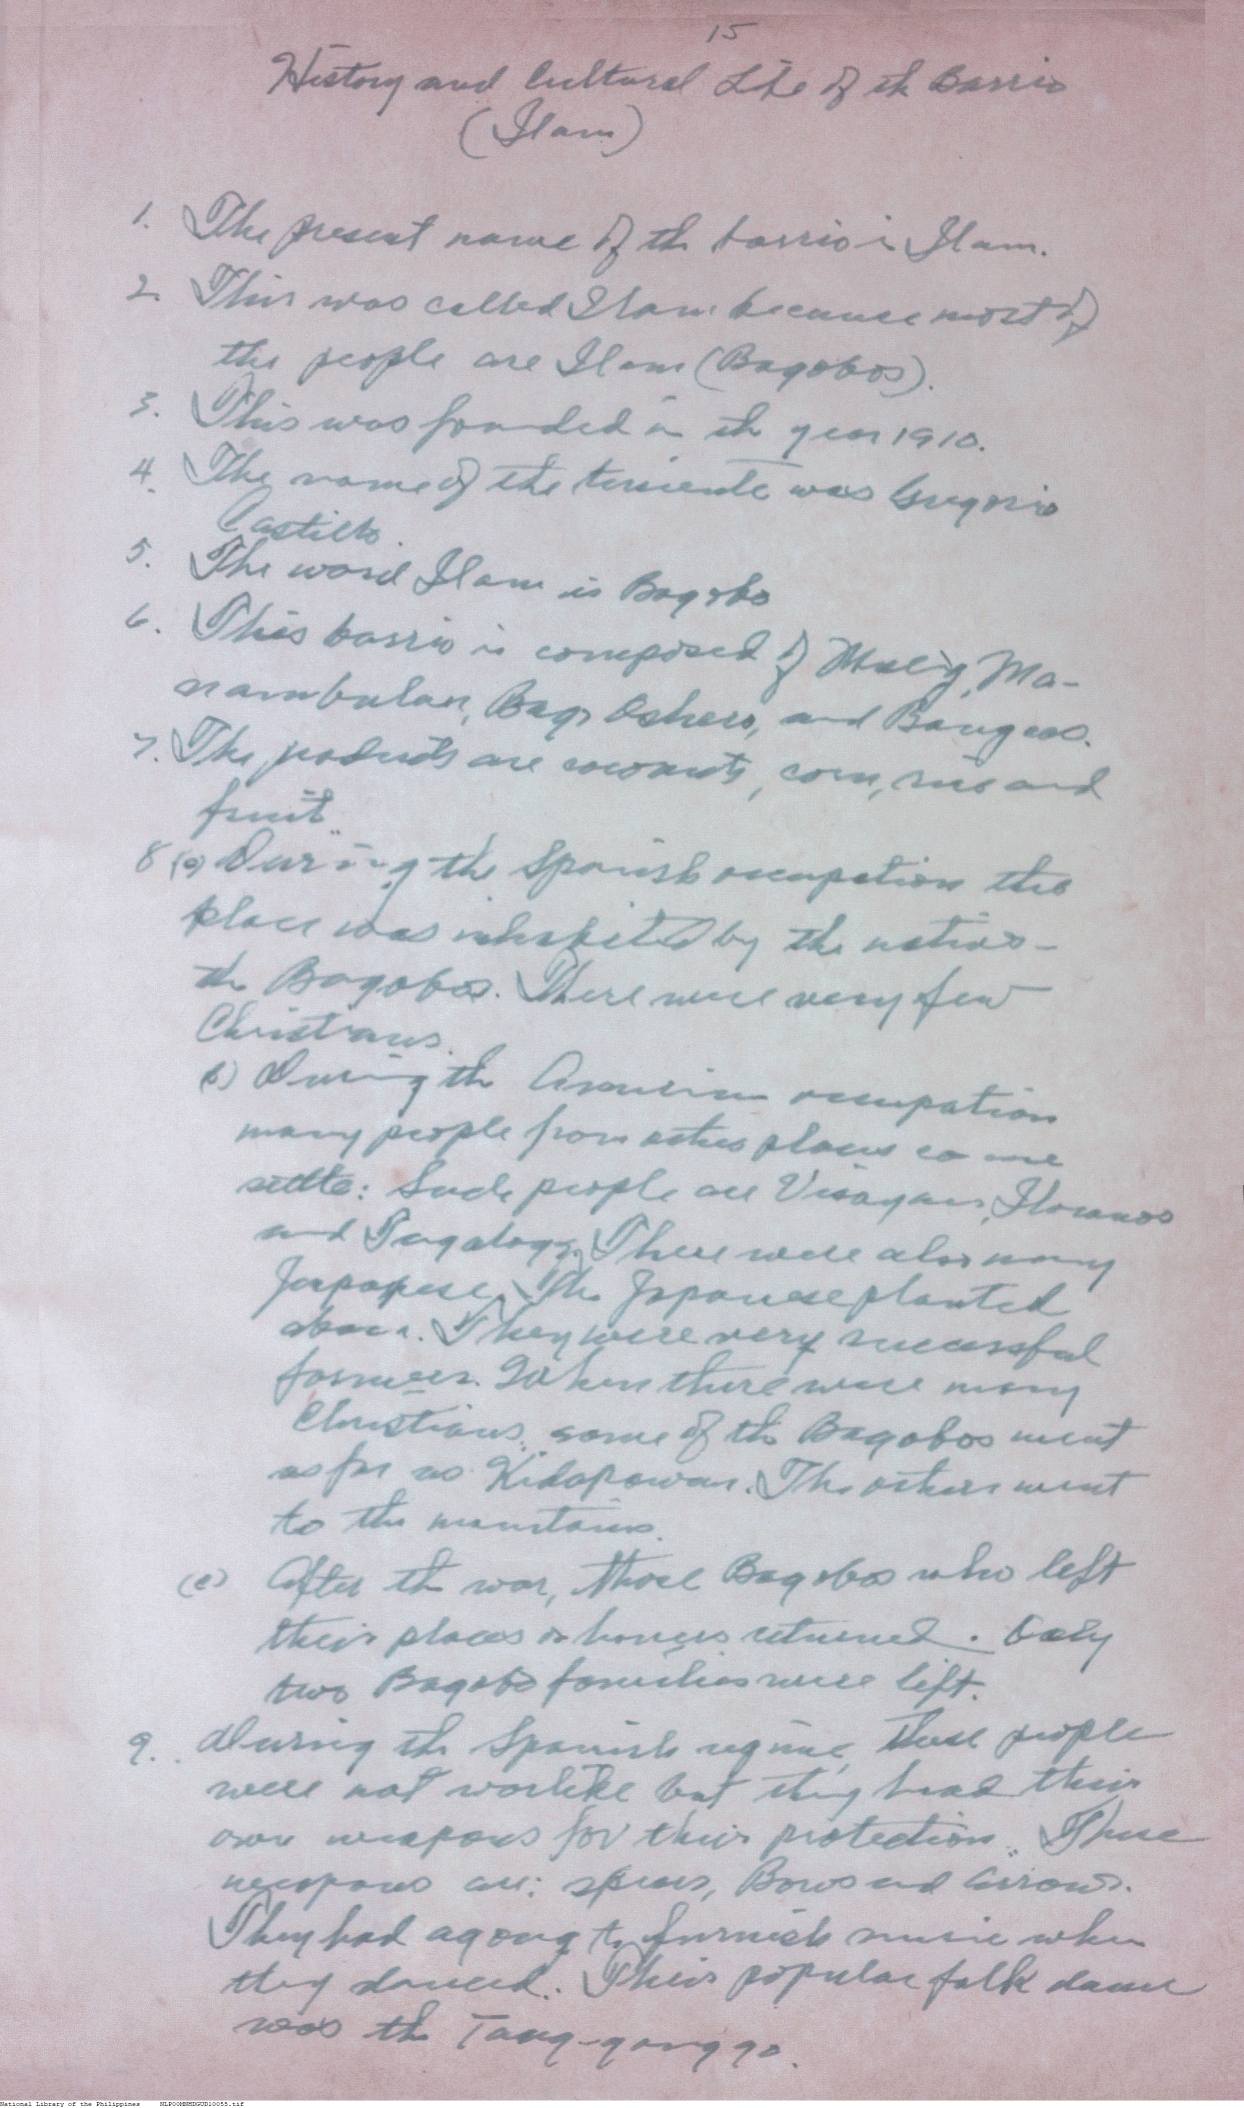 15
History and Cultural Life of th Barrio
(Ilam)
1. The present name of th barrio is Ilam.
2. This was called Ilam because most of
the people are Ilam (Bagobos).
3. This was founded in th year 1910.
4. The name of the teniente was Gregorio
Castillo.
5. The word Ilam is Bagobo
6. This barrio is composed of Ma-
nambulan, Bago and Bangcas.
7. The products are coconuts, corn, rice and
fruit.
8 (a) During the Spanish occupation this
place was inhabited by the natives -
th Bagobos. There were very few
Christians.
(b) During th American occupation
many people from other places came
settle: Such people are Visayans, Ilocanos
and Tagalogs. There were also many
Japanese. The Japanese planted
abaca. They were very successful
farmers. When there were many
Christians, some of the Bagobos went
as far as Kidapawan. The others went
to the mountains.
(c) After th war, those Bagobos who left
their places or homes returned. Only
two Bagobo families were left.
9. During th Spanish regime, these people
were not warlike but they had their
own weapons for their protection. These
weapons are: spears, Bows and arrows.
They had agong to furnish music when
they danced. Their popular folk dance
was th Tang-gonggo.
National Library of the Philippines NLPOOMNHDGUD10055.tif